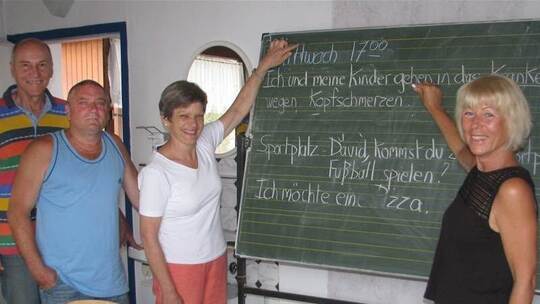 Mittwoch 17 00
Ich und meine Kinder gehen in das Kranke
wegen Kopfschmerzen.
Sportplatz: David, kommst du
Sportpl
Fußball spielen?
Ich möchte eine Pizza.